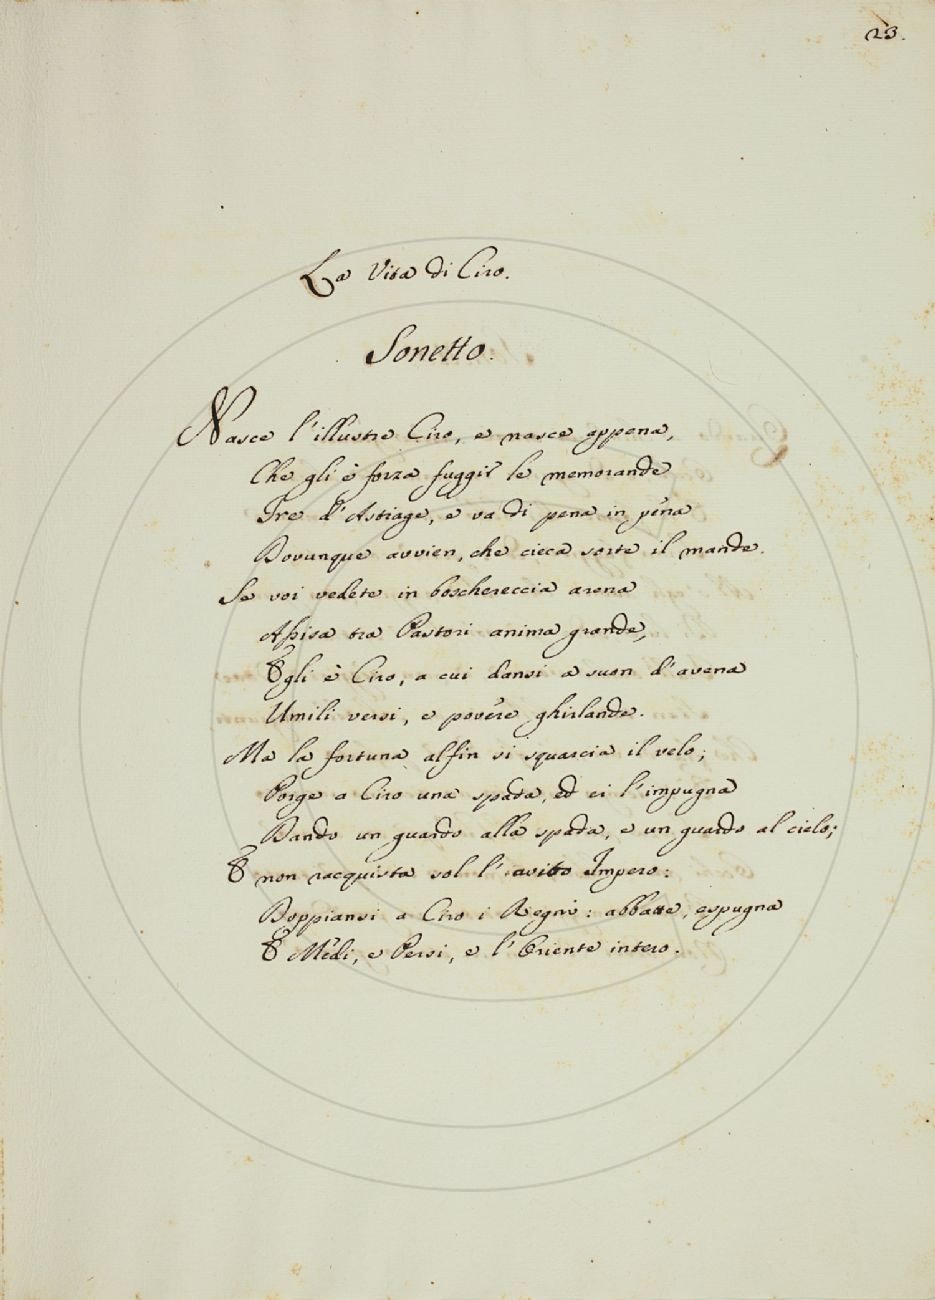 23.
La Vita di Ciro.
Sonetto.
Nasce l'illustre Ciro, e nasce appena,
Che gli è forza fuggir le memorande
Ire d'Astiage, e va di pena in pena
Dovunque avvien, che cieca sorte il mande.
Se voi vedete in boschereccia arena
Assisa tra Pastori anima grande,
Egli è Ciro, a cui dansi a suon d'avena
Umili versi, e povere ghirlande.
Ma la fortuna alfin si squarcia il velo;
Porge a Ciro una spada, ed ei l'impugna
Dando un guardo alla spada, e un guardo al cielo;
E non racquista sol l'avito Impero:
Doppiansi a Ciro i Regni: abbatte, espugna
E Medi, e Persi, e l'Oriente intero.